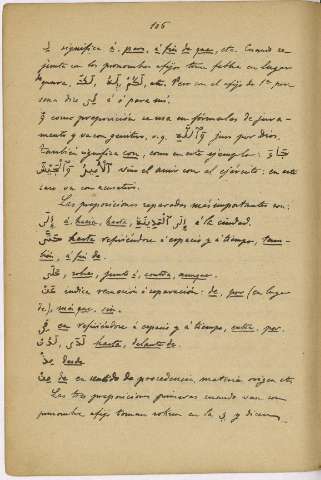 106
لِ significa á, para, á fin de que, etc. Cuando se
junta con los pronombres afijos toma fatha en lugar
quesra, لَكُمْ, لَهُ, لَكَ, etc. Pero con el afijo de 1ª per-
sona dice لِى á ó para mí.
وَ como preposición se usa en fórmulas de jura-
mento y en con genitivo, v.g. وَٱللّٰهِ juro por Dios.
También significa con, como en este ejemplo: جَاءَ
ٱلْأَمِيرُ وَٱلْجَيْشَ vino el amir con el ejército: en este
caso va con acusativo.
Las preposiciones separadas más importantes son:
إِلَى á, hacia, hasta, إِلَى ٱلْمَدِينَةِ á la ciudad.
حَتَّى hasta refiriéndose á espacio y á tiempo, tam-
bién, á fin de.
عَلَى, sobre, junto á, contra, aunque.
عَنْ indica remoción ó separación: de, por (en lugar
de), más que, sin.
فِى en refiriéndose á espacio y á tiempo, entre, por.
لَدَى, لَدُنْ hasta, delante de.
مُنْذُ desde
مِنْ de en sentido de procedencia, materia origen etc.
Las tres preposiciones primeras cuando van con
pronombre afijo toman sokun en la ى y dicen